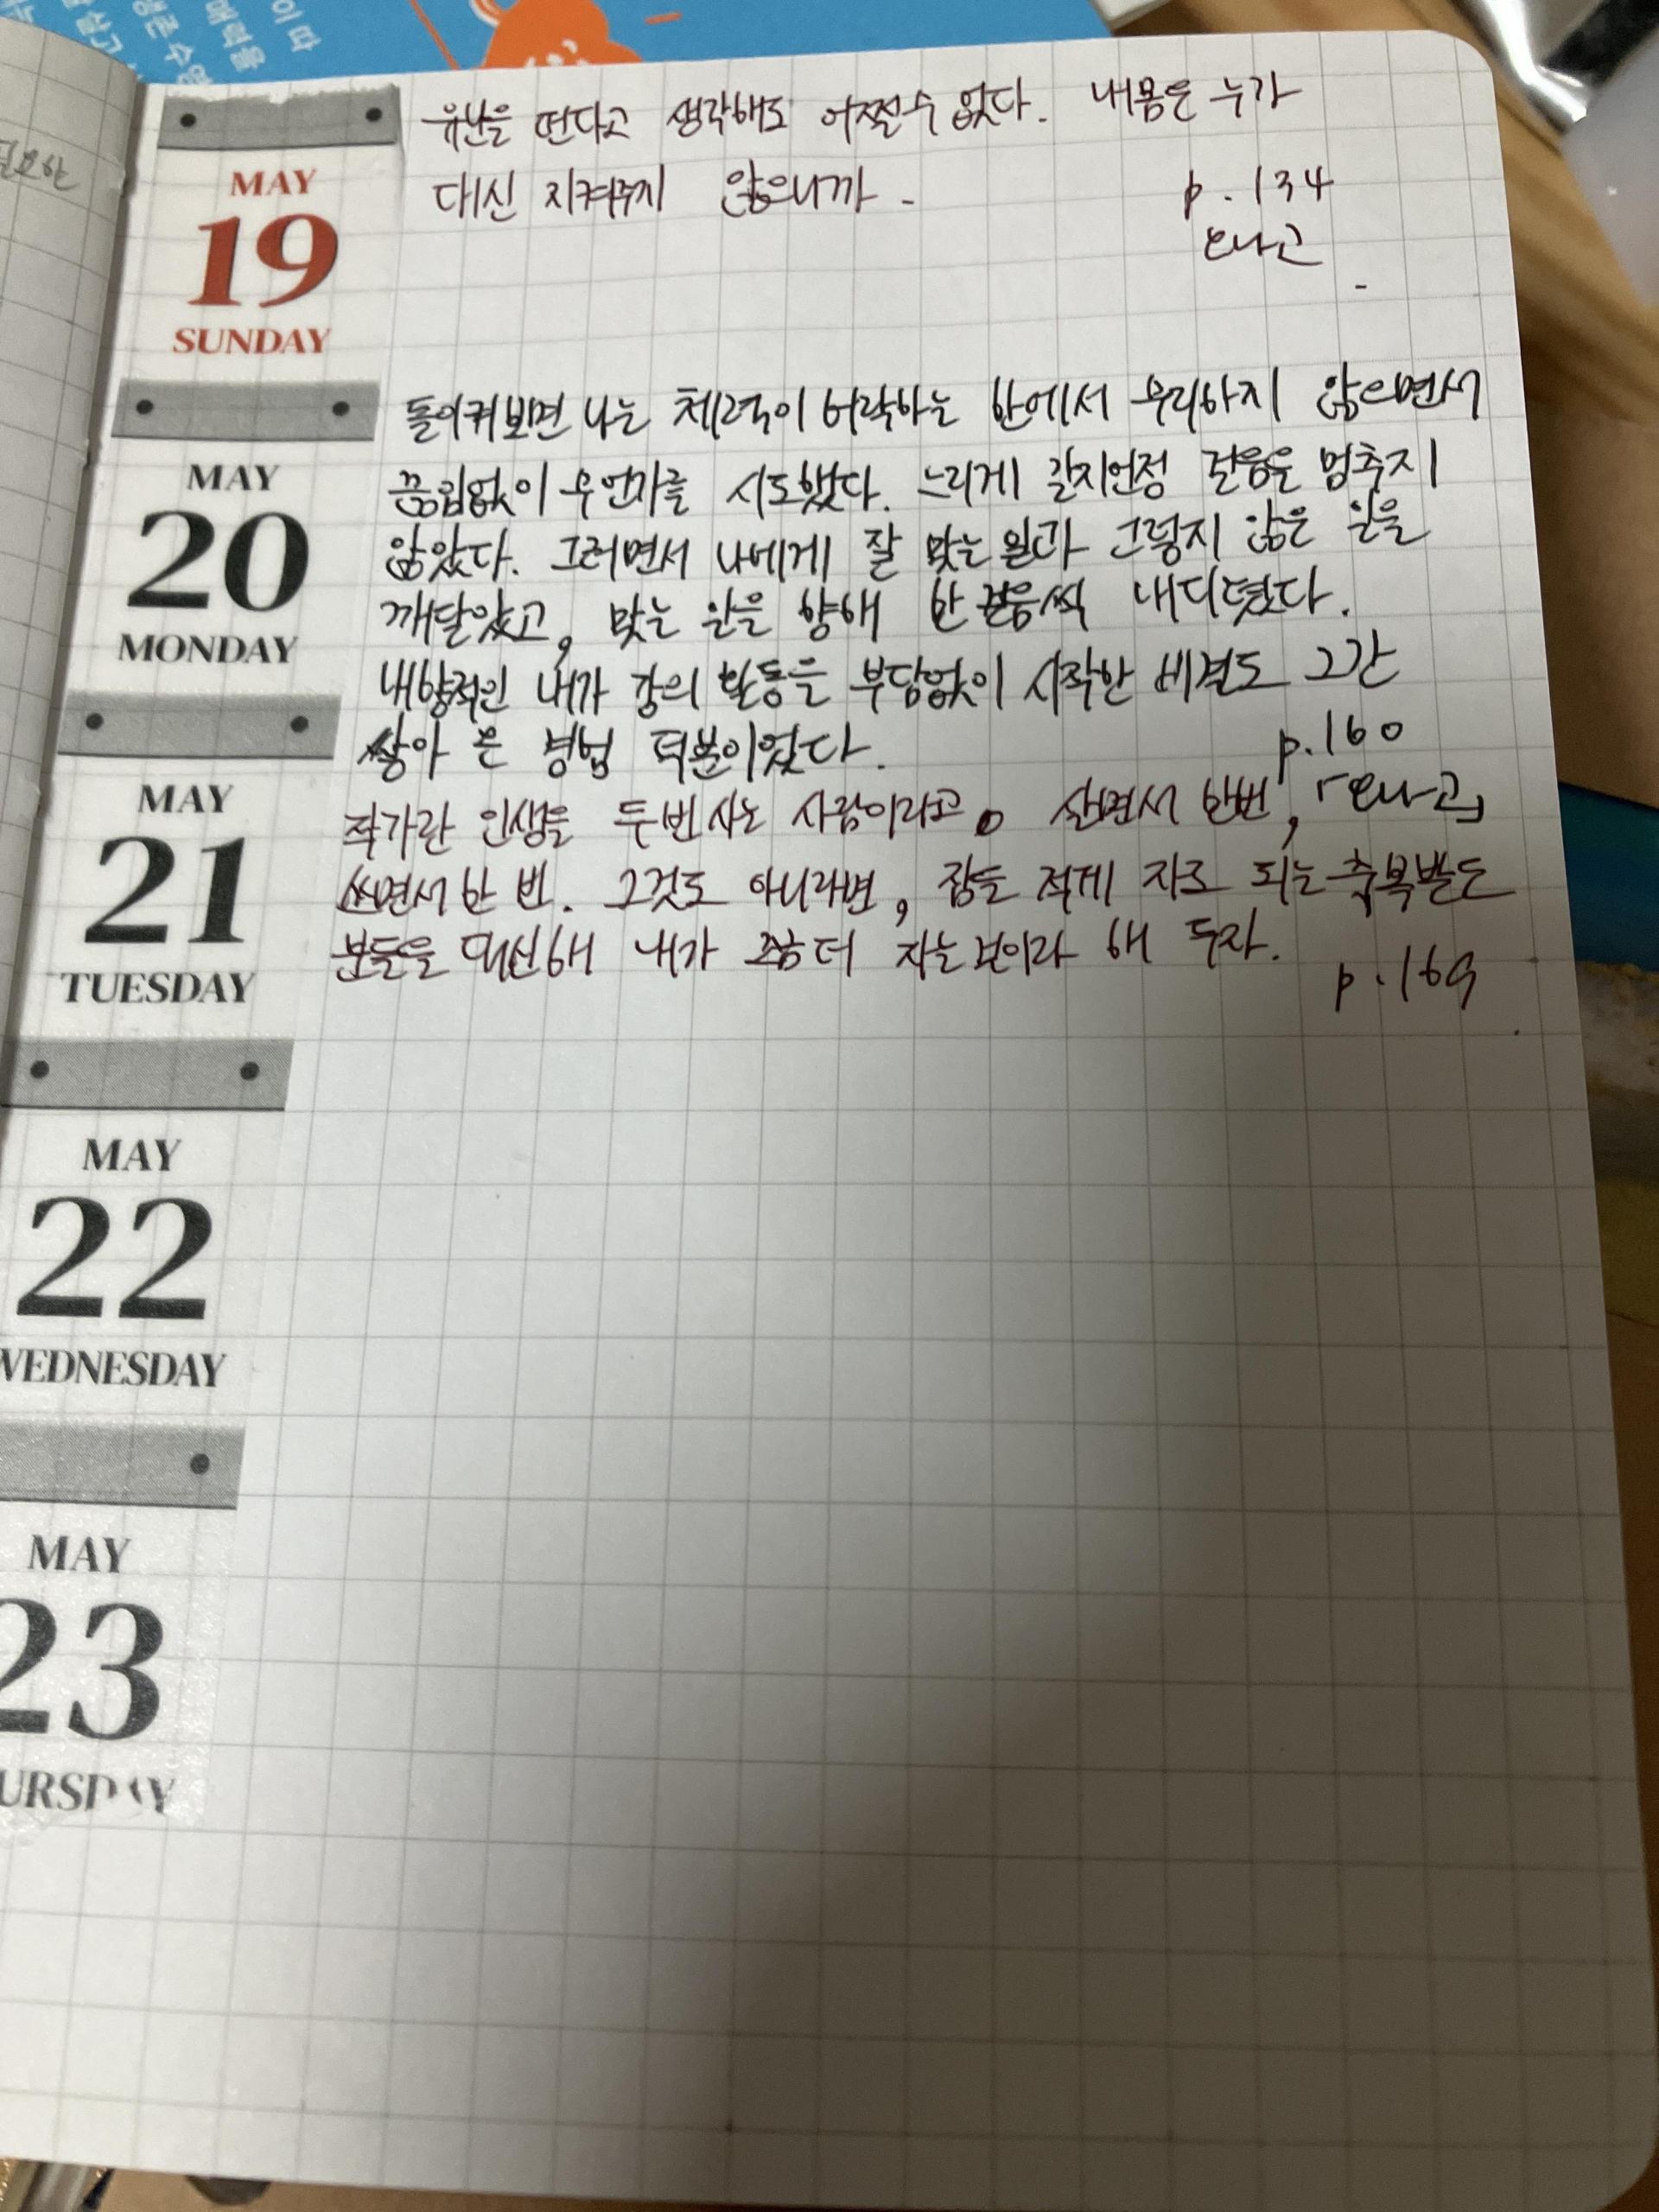 유난을 떤다고 생각해도 어쩔수 없다. 내몸은 누가
대신 지켜주지 않으니까.
p.134
MAY
19
SUNDAY
돌이켜보면 나는 체력이 허락하는 한에서 무리하지 않으면서
끊임없이 무언가를 시도했다. 느리게 갈지언정 걸음은 멈추지
않았다. 그러면서 나에게 잘 맞는 일과 그렇지 않은 일을
깨달았고, 맞는 일을 향해 한 걸음씩 내디뎠다.
내향적인 내가 강의 활동을 부담없이 시작한 비결도 그간
쌓아 온 경험 덕분이었다.
p.160
MAY
20
MONDAY
작가란 인생을 두번 사는 사람이라고. 살면서 한번,
쓰면서 한 번. 그것도 아니라면, 잠을 적게 자도 되는 축복받은
분들을 대신해 내가 좀 더 자는 것이라 해 두자.
p.169
MAY
21
TUESDAY
MAY
22
WEDNESDAY
MAY
23
필요한
이 따
매력을